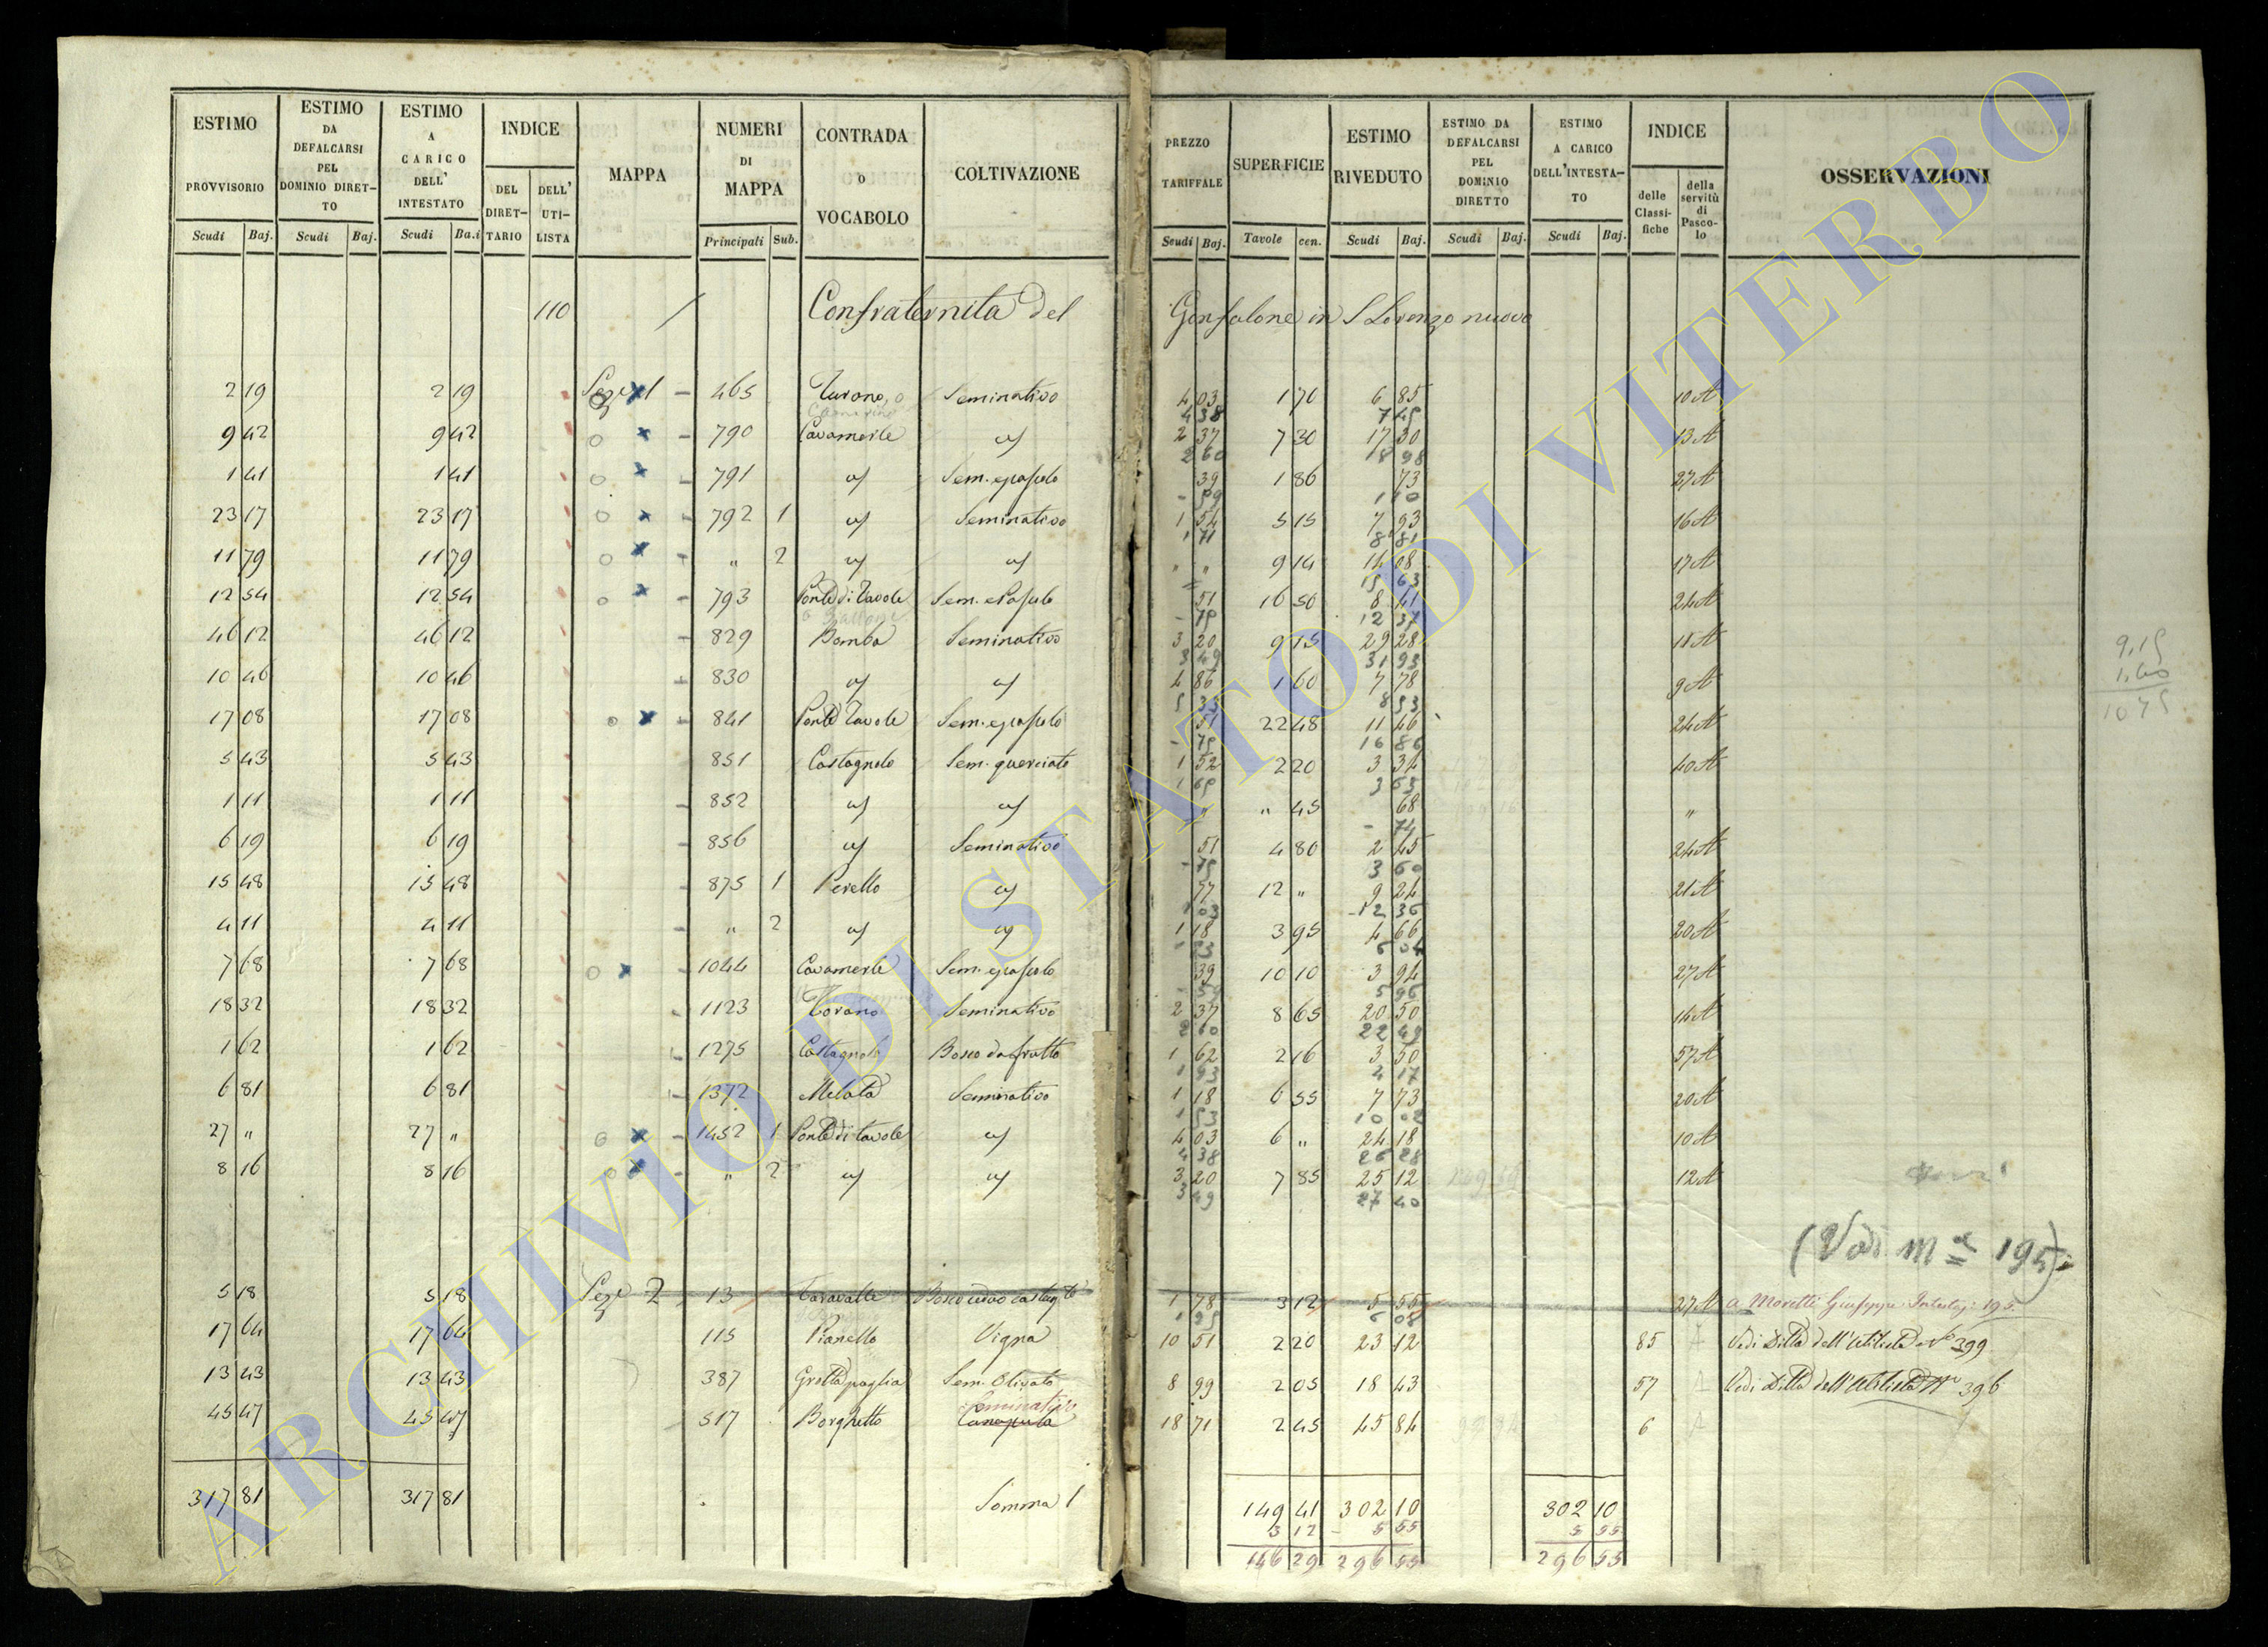 ESTIMO PROVVISORIO | ESTIMO DA DEFALCARSI PEL DOMINIO DIRET-TO | ESTIMO A CARICO DELL' INTESTATO | INDICE | MAPPA | NUMERI DI MAPPA | CONTRADA O VOCABOLO | COLTIVAZIONE | PREZZO TARIFFALE | SUPERFICIE | ESTIMO RIVEDUTO | ESTIMO DA DEFALCARSI PEL DOMINIO DIRETTO | ESTIMO A CARICO DELL'INTESTA-TO | INDICE | OSSERVAZIONI
DEL DIRET-TARIO | DELL' UTI-LISTA | delle Classi-fiche | della servitù di Pasco-lo
Scudi | Baj. | Scudi | Baj. | Scudi | Ba.i | Principali | Sub. | Scudi | Baj. | Tavole | cen. | Scudi | Baj. | Scudi | Baj. | Scudi | Baj.
110 / Confraternita del Gonfalone in S Lorenzo nuovo
2 19 | 2 19 | Seze 1 | 465 | Turono | Seminativo | 4 03 | 1 70 | 6 85 | 10 A
4 38 | 7 45
9 42 | 9 42 | o x | 790 | Cavamerle | id | 2 37 | 7 30 | 17 30 | 13 A
2 60 | 18 98
1 41 | 1 41 | o x | 791 | id | Sem. e pascolo | 39 | 1 86 | 73 | 27 A
- 59 | 1 10
23 17 | 23 17 | o x | 792 | 1 | id | Seminativo | 1 54 | 5 15 | 7 93 | 16 A
1 71 | 8 81
11 79 | 11 79 | o x | " | 2 | id | id | " " | 9 14 | 14 08 | 17 A
15 63
12 54 | 12 54 | o x | 793 | Ponte di Tavole | Sem. e Pascolo | 51 | 16 50 | 8 41 | 24 A
- 75 | 12 37
46 12 | 46 12 | 829 | Bomba | Seminativo | 3 20 | 9 15 | 29 28 | 18 A
3 49 | 31 93 | 9,15
10 46 | 10 46 | 830 | id | id | 4 86 | 1 60 | 7 78 | 9 A | 1,60
5 33 | 8 53 | 10 75
17 08 | 17 08 | o x | 841 | Ponte Tavole | Sem. e pascolo | 51 | 22 48 | 11 46 | 24 A
- 75 | 16 86
5 43 | 5 43 | 851 | Castagnolo | Sem. querciato | 1 52 | 2 20 | 3 34 | 40 A
1 65 | 3 63
1 11 | 1 11 | 852 | id | id | " | " 45 | 68 | "
- 74
6 19 | 6 19 | 856 | id | Seminativo | 51 | 4 80 | 2 45 | 24 A
- 75 | 3 60
15 48 | 15 48 | 875 | 1 | Perello | id | 77 | 12 " | 9 24 | 21 A
1 03 | 12 36
4 11 | 4 11 | " | 2 | id | id | 1 18 | 3 95 | 4 66 | 20 A
1 53 | 6 04
7 68 | 7 68 | o x | 1044 | Cavamerle | Sem. e pascolo | 39 | 10 10 | 3 94 | 27 A
- 59 | 5 96
18 32 | 18 32 | 1123 | Torano | Seminativo | 2 37 | 8 65 | 20 50 | 14 A
2 60 | 22 49
1 62 | 1 62 | 1275 | Castagnolo | Bosco da frutto | 1 62 | 2 16 | 3 50 | 57 A
1 93 | 4 17
6 81 | 6 81 | 1372 | Melata | Seminativo | 1 18 | 6 55 | 7 73 | 20 A
1 53 | 10 02
27 " | 27 " | o x | 1452 | 1 | Ponte di tavole | id | 4 03 | 6 " | 24 18 | 10 A
4 38 | 26 28
8 16 | 8 16 | o x | " | 2 | id | id | 3 20 | 7 85 | 25 12 | 12 A
3 49 | 27 40
(Vedi m e 195)
5 18 | 5 18 | Seze 2 | 13 | Caravalle | Bosco ceduo castag.le | 1 78 | 3 12 | 5 55 | 27 A | a Moretti Giuseppe Intestaz. 195
1 95 | 6 08
17 64 | 17 64 | 115 | Pianello | Vigna | 10 51 | 2 20 | 23 12 | 85 | Vedi Ditta dell'Utilista No 399
13 43 | 13 43 | 387 | Grotta paglia | Sem. Olivato | 8 99 | 2 05 | 18 43 | 57 | Vedi Ditta dell'Utilista No 396
Seminativo
45 47 | 45 47 | 517 | Borghetto | Canapula | 18 71 | 2 45 | 45 84 | 6
317 81 | 317 81 | Somma 1 | 149 41 | 302 10 | 302 10
3 12 | - 5 55 | 5 55
146 29 | 296 55 | 296 55
ARCHIVIO DI STATO DI VITERBO